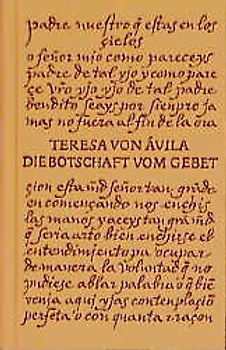 padre nuestro q̃ estas en los
çielos
o señor mio como pareceys
padre de tal yjo y como pare
çe v̄ro yjo yjo de tal padre
bendito seays por sienpre ja
mas no fuera al fin de la ora
TERESA VON ÁVILA
DIE BOTSCHAFT VOM GEBET
çion esta señor tan grãde
en començando nos enchis
las manos y aceys tan grãmd
q̃ seria arto bien enchirse el
entendimiento pa ocupar
de manera la voluntad q̃ no
pudiese ablar palabra o q̃ bie
venia aqui yjas contenplaçio
perfeta o con quanta rraçon